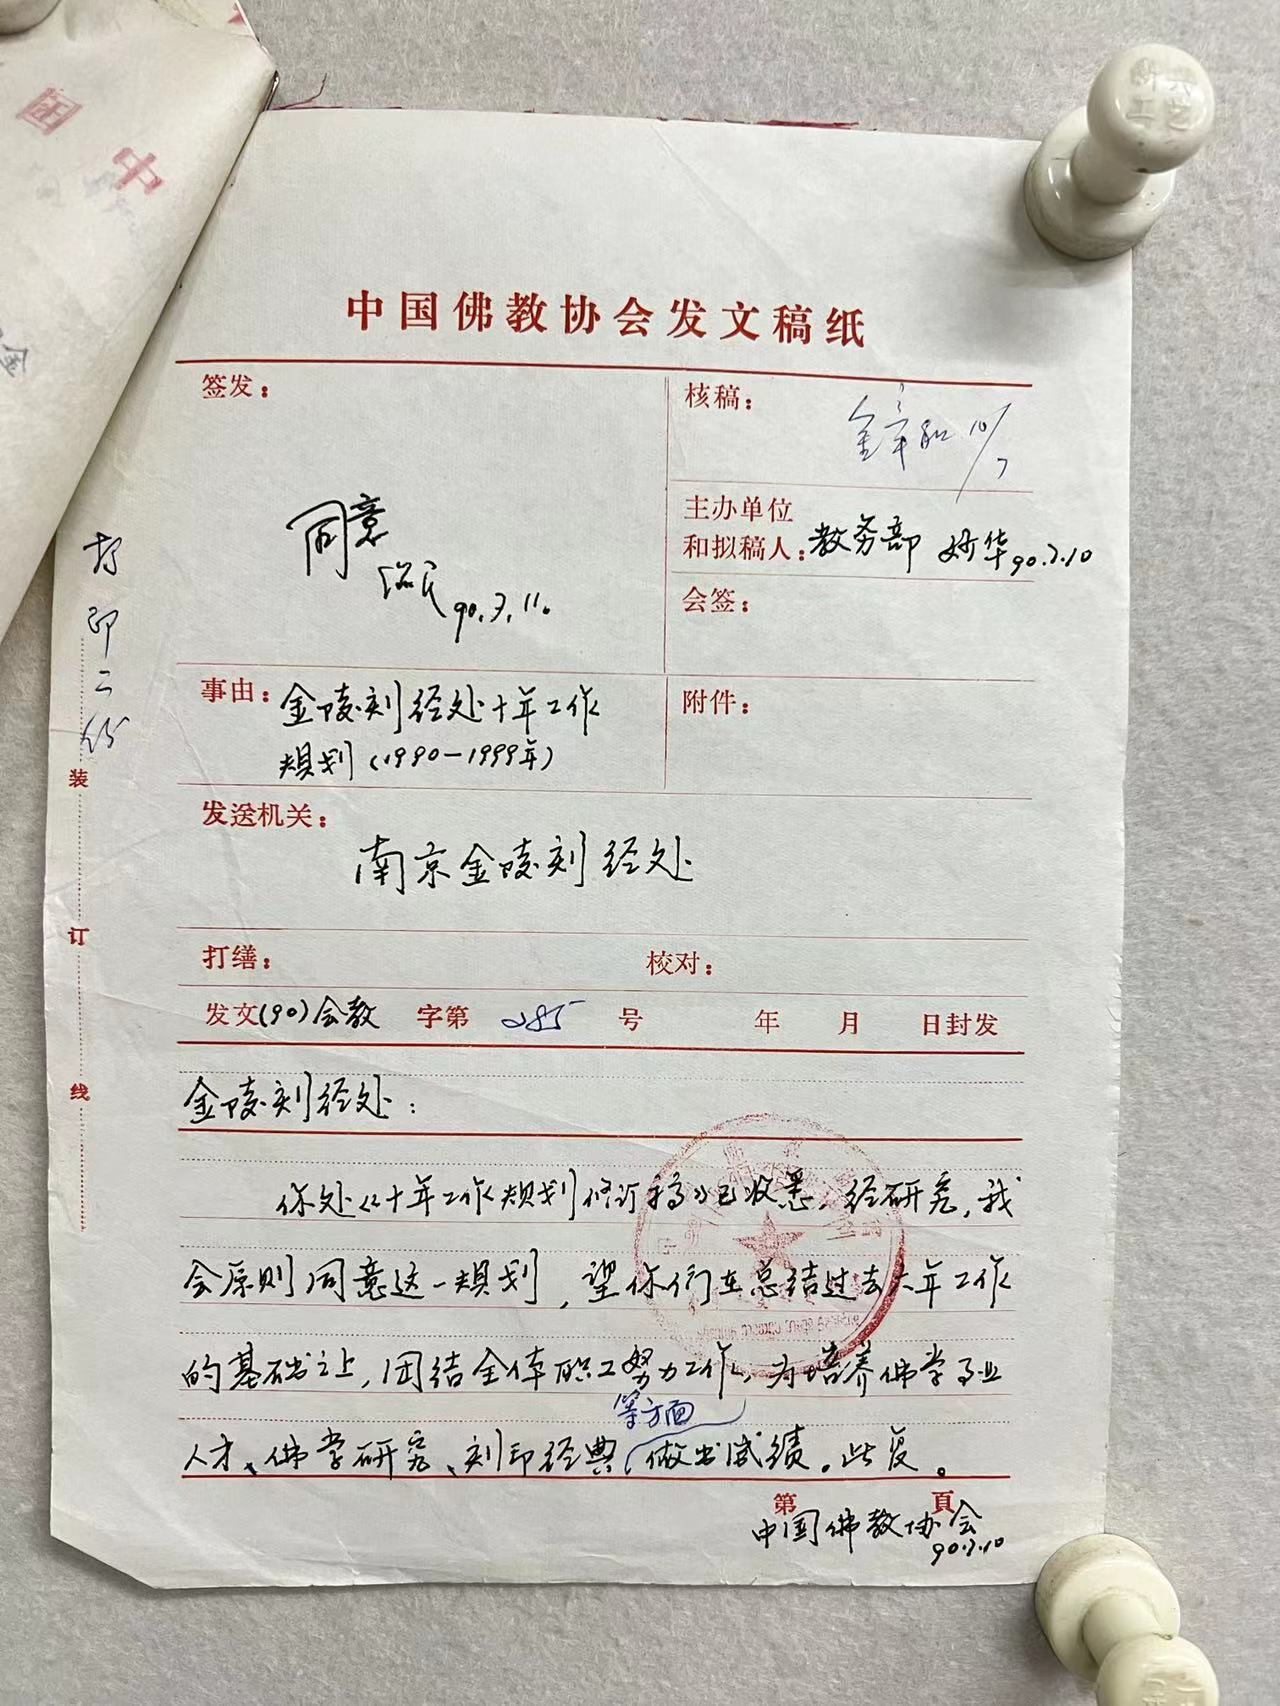 中国佛教协会发文稿纸
签发：
同意
90.7.11.
核稿：
10/7
主办单位
和拟稿人：教务部 妙华 90.7.10
会签：
事由：金陵刻经处十年工作
规划（1990—1999年）
附件：
发送机关：
南京金陵刻经处
打缮：
校对：
发文(90)会教 字第 285 号 年 月 日封发
金陵刻经处：
你处《十年工作规划修订稿》已收悉，经研究，我
会原则同意这一规划，望你们在总结过去六年工作
的基础之上，团结全体职工努力工作，为培养佛学专业
人才、佛学研究、刻印经典等方面做出成绩。此复。
第 頁
中国佛教协会
90.7.10
打印二份
装
订
线
中国